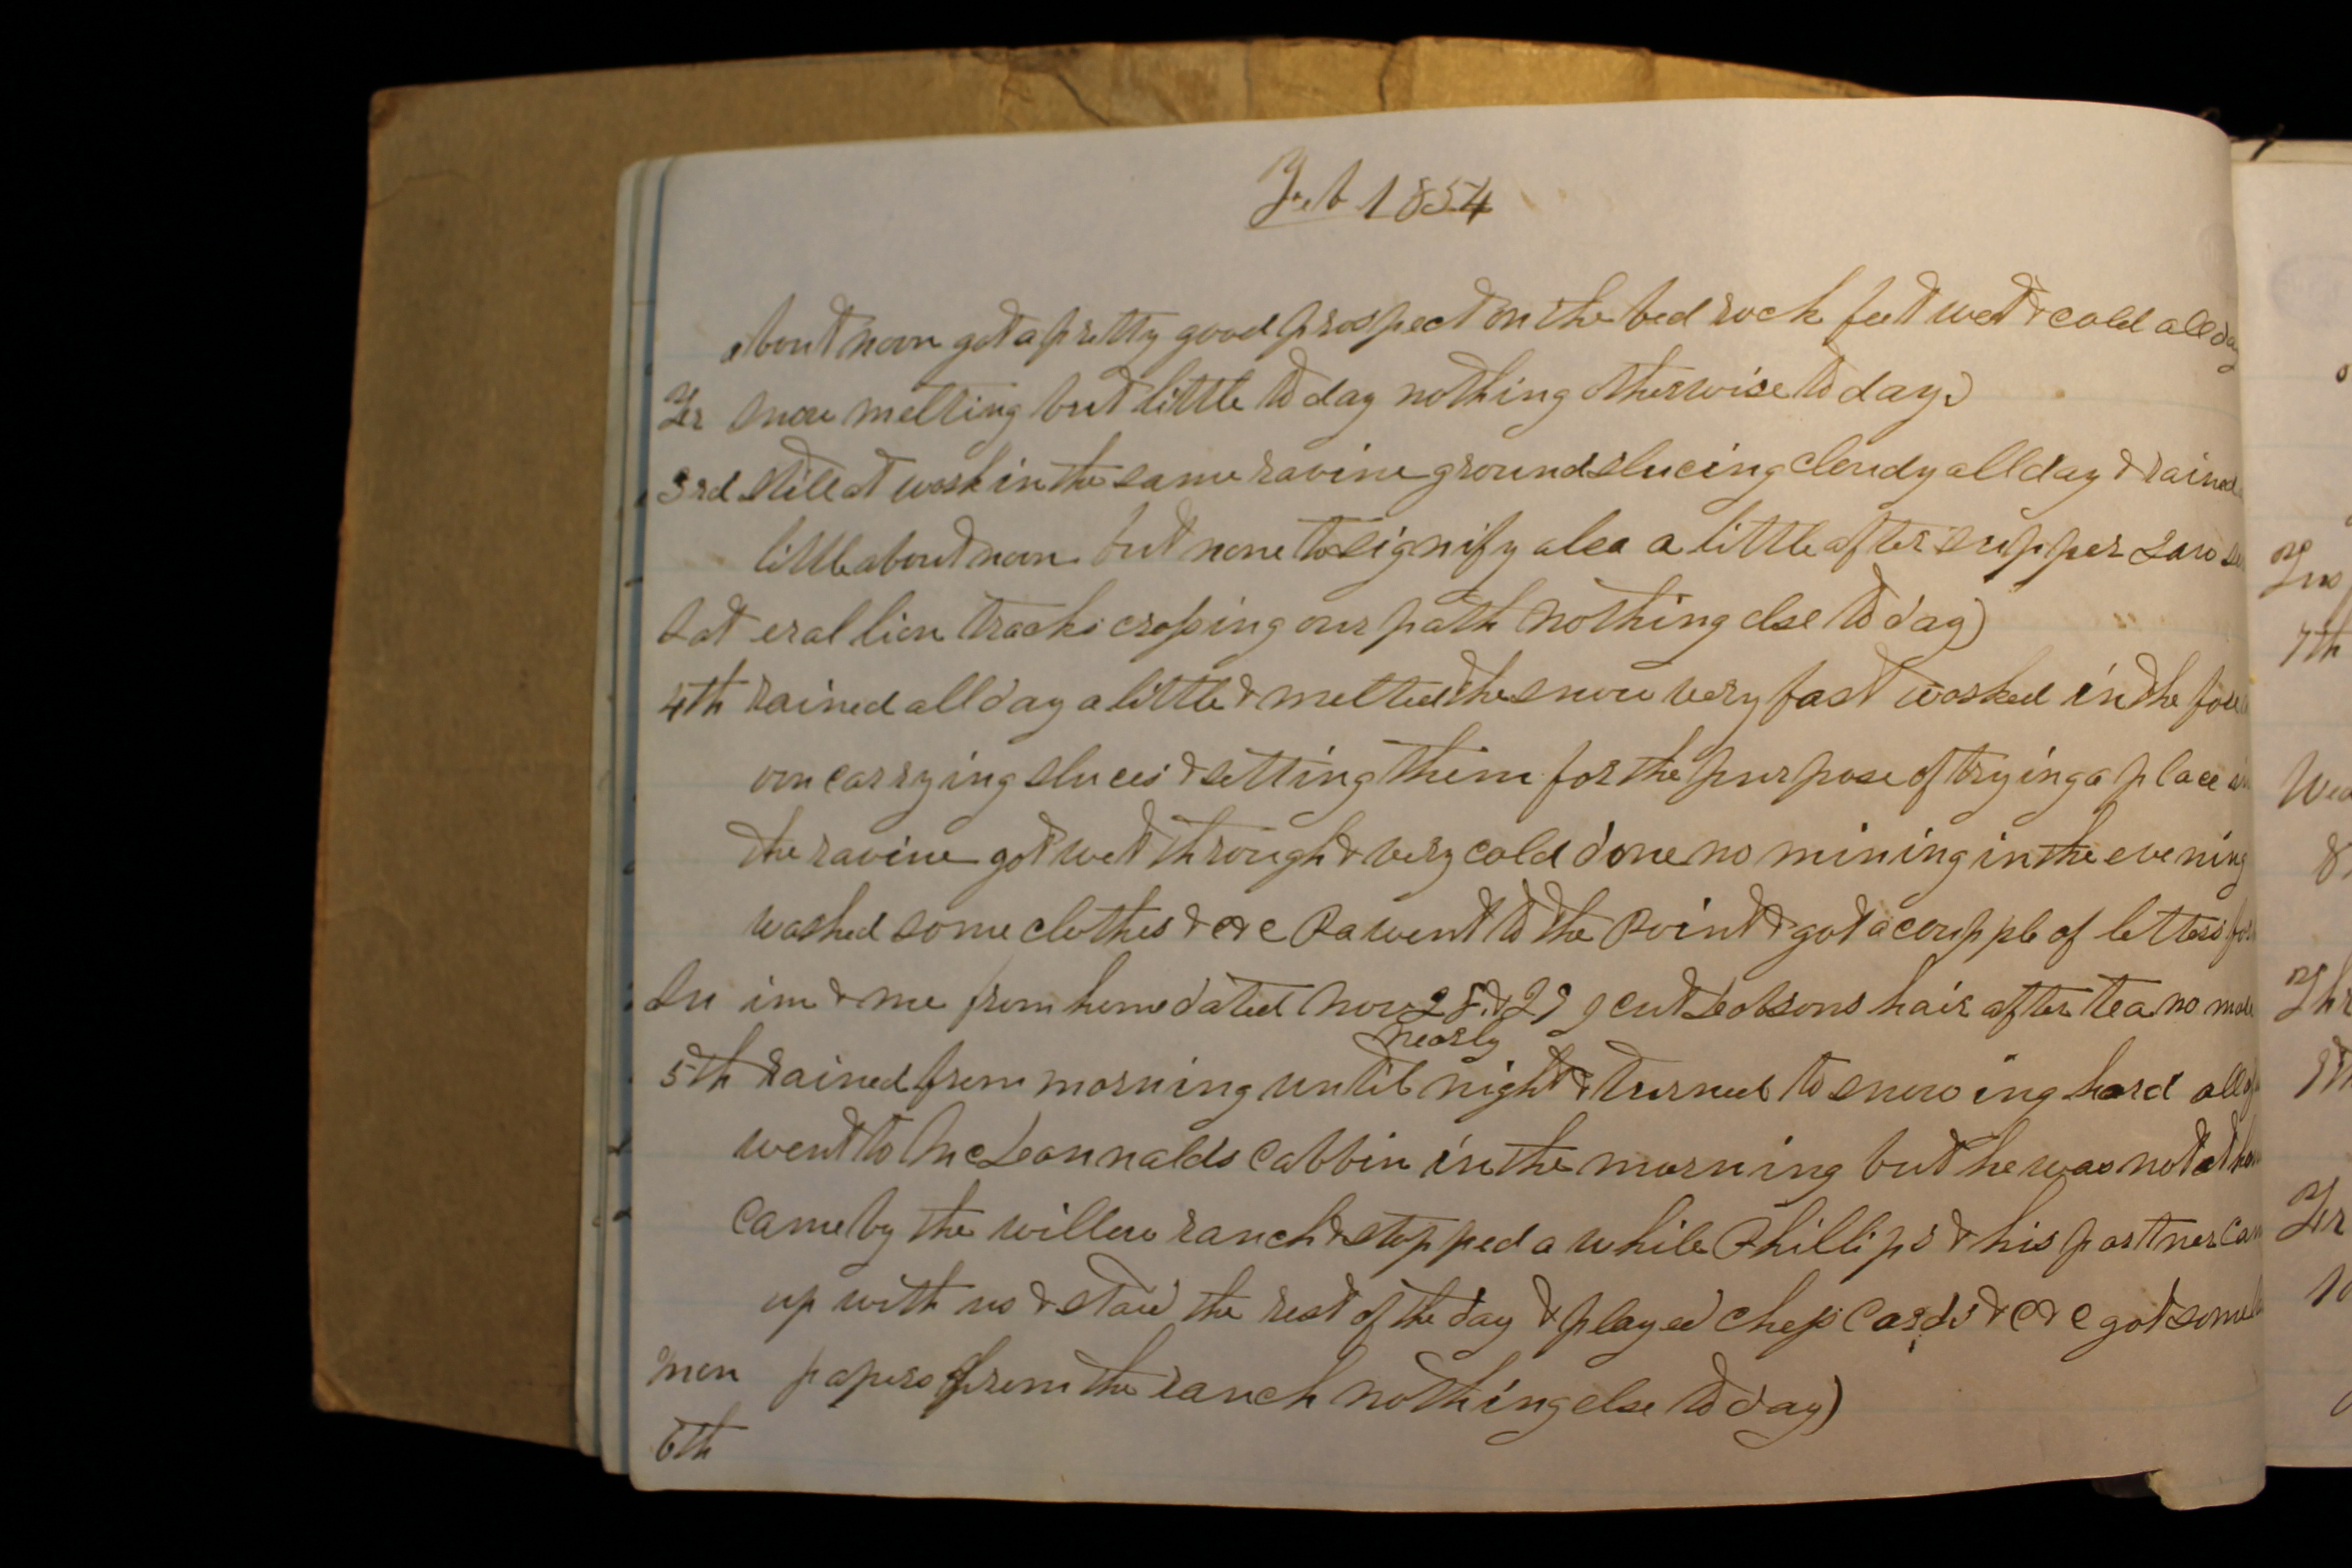 Feb 1854
about noon got a pretty good prospect on the bed rock feet wet & cold all day
Fr snow melting but little to day nothing otherwise to day)
3rd still at work in the same ravine ground slucing cloudy all day & rained
little about noon but none to signify also a little after supper saw sev
Sat eral lion tracks crossing our path nothing else to day)
4th rained all day a little & melted the snow very fast worked in the foren
oon carrying sluces & setting them for the purpose of trying a place in
the ravine got wet through & very cold done no mining in the evening
washed some clothes & c & c Pa went to the Point & got a coupple of letters for
Su im & me from home dated Nov 28 & 29 I cut Dobsons hair after tea no more
nearly
5th rained from morning until night & turned to snowing hard all
went to McDonnalds cabbin in the morning but he was not at home
came by the willow ranch & stopped a while Phillips & his partner came
up with us & staid the rest of the day & played chess cards & c & c got some
mon papers from the ranch nothing else to day)
6th
7th
Wed
8
Thr
9th
Fr
10